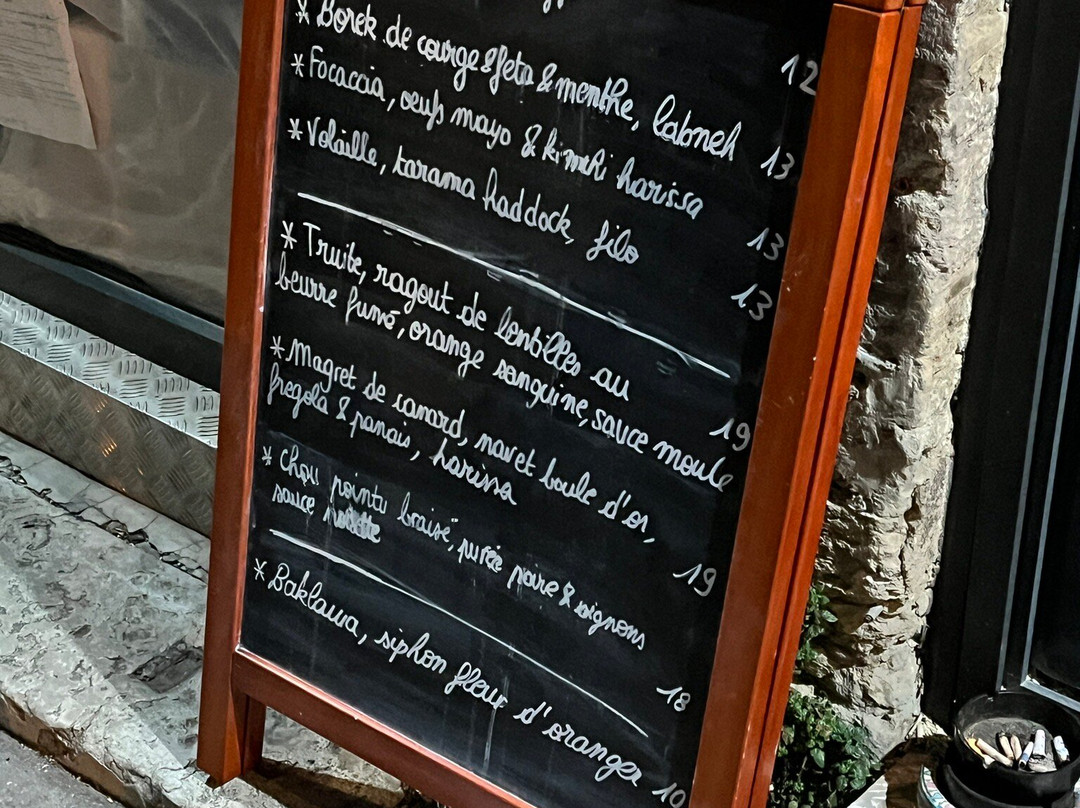 * Borek de courge & feta & menthe, labneh 12
* Focaccia, œufs mayo & kimchi harissa 13
* Volaille, tarama haddock, filo 13
13
* Truite, ragout de lentilles au
beurre fumé, orange sanguine, sauce moule 19
* Magret de canard, navet boule d'or,
fregola & panais, harissa 19
* chou pointu braisé, purée poire & oignons
sauce 18
* Baklawa, siphon fleur d'oranger 10